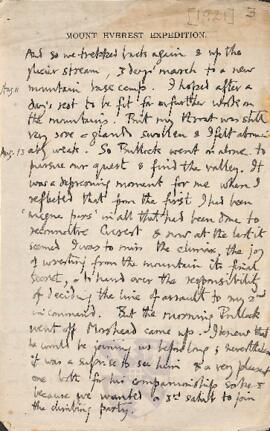 [1921] 3
MOUNT EVEREST EXPEDITION.
And so we trekked back again & up the
glacier stream, 2 days' march to a new
Aug 11 mountain base camp. I hoped after a
day's rest to be fit for a further work on
the mountains. But my throat was still
very sore & glands swollen & I felt abomin-
Aug. 13 ably weak. So Bullock went on alone to
pursue our quest & find the valley. It
was a depressing moment for me when I
reflected that from the first I had been
in all that had been done to
reconnoitre Everest & now at the last it
seemed I was to miss the climax, the joy
of wresting from the mountain its final
secret, & to hand over the responsibility
of deciding the line of assault to my 2nd
in command. But the morning Bullock
went off Morshead came up. I knew that
he would be joining us before long & nevertheless
it was a surprise to see him & a very pleasant
one both for his companionship's sake &
because we wanted a 3rd sahib to join
the climbing party.